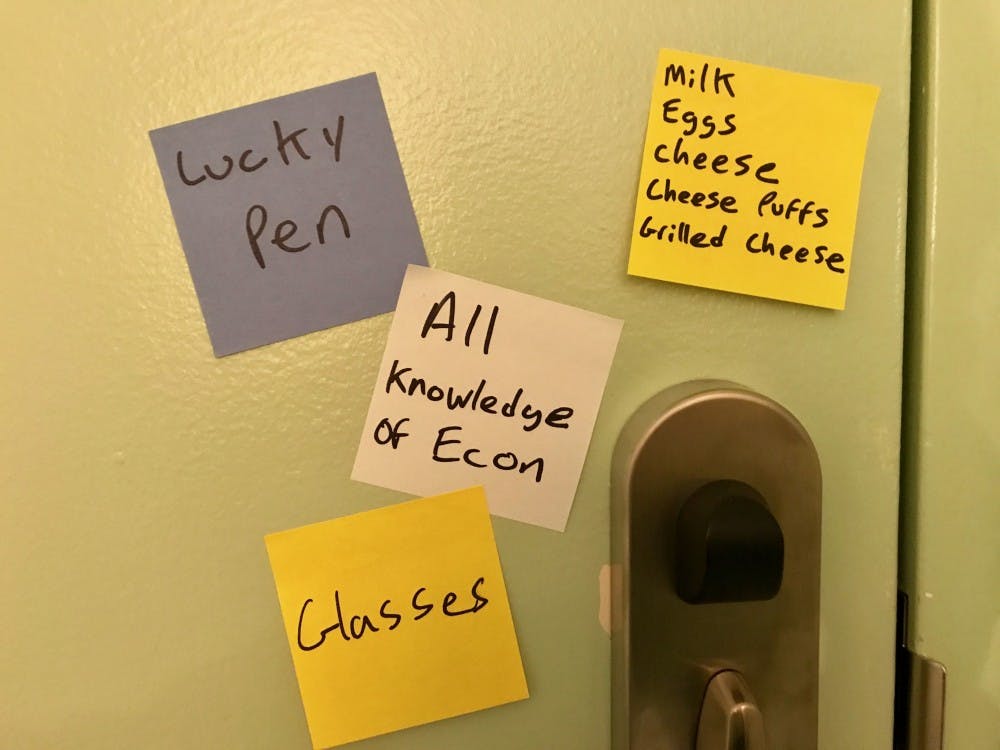 Lucky
Pen
Milk
Eggs
cheese
Cheese Puffs
Grilled Cheese
All
Knowledge
of Econ
Glasses